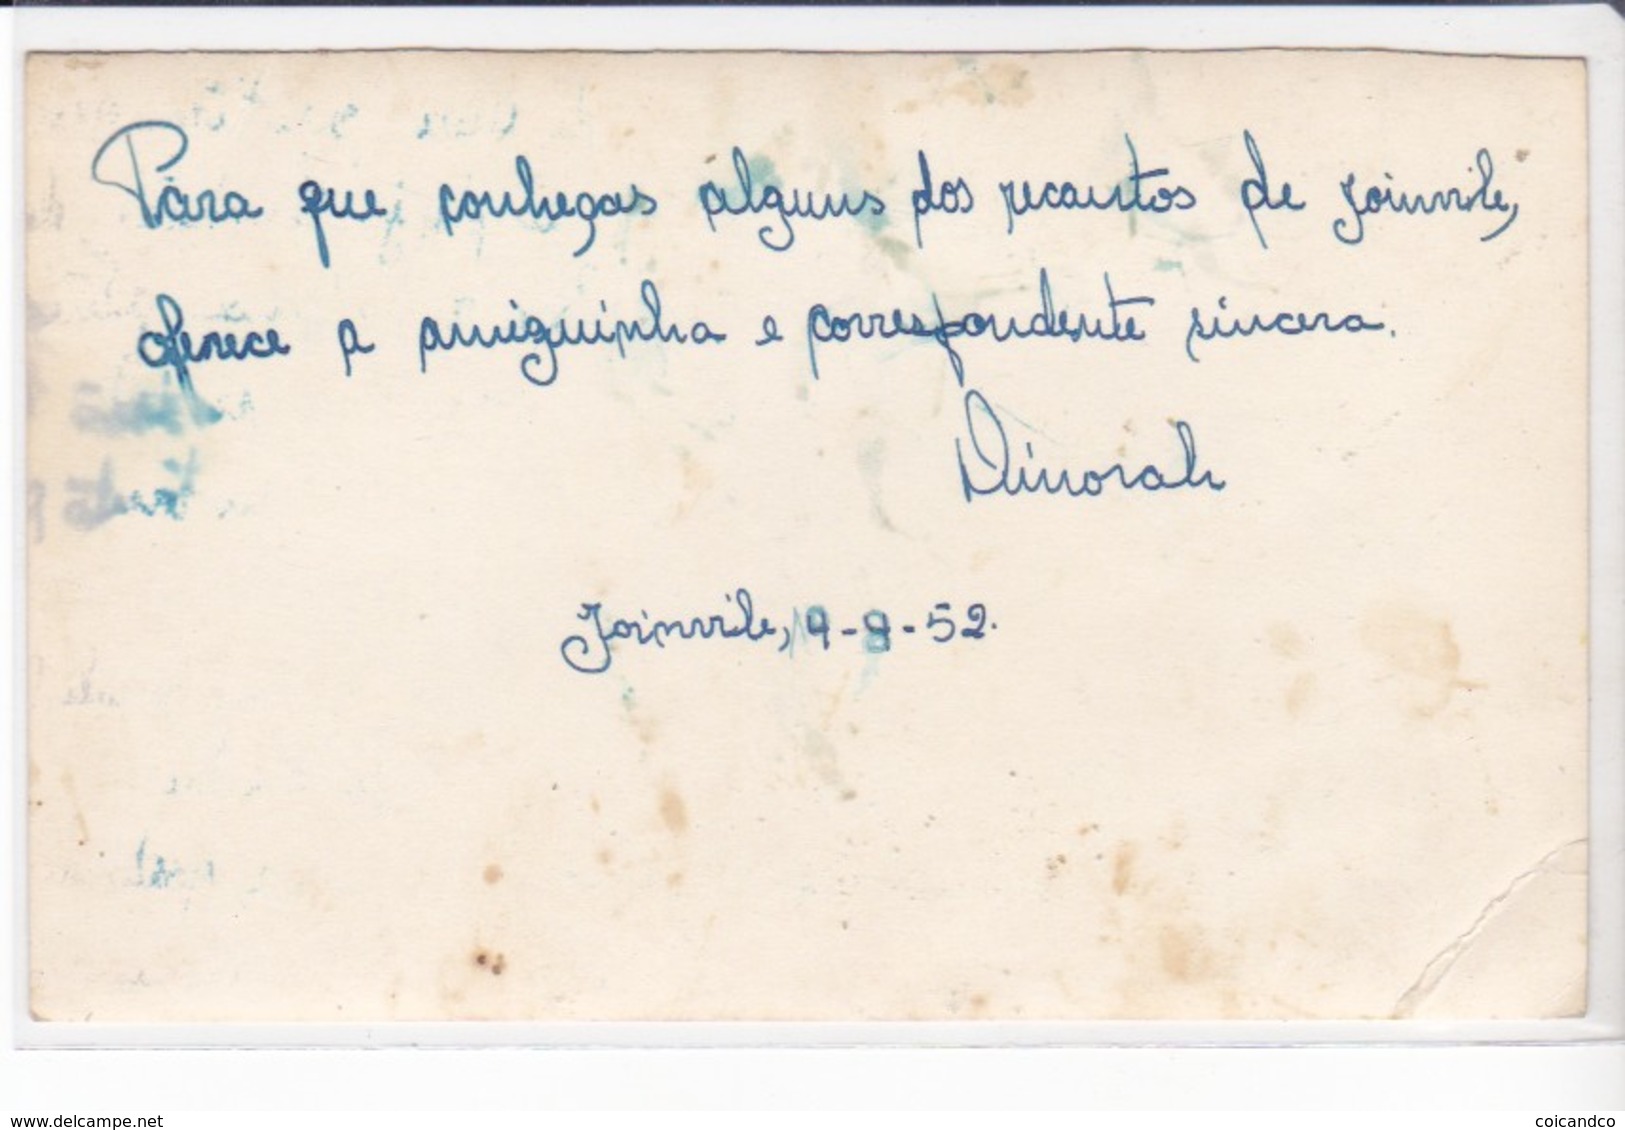 Para que conheças alguns dos recantos de Joinvile,
oferece a amiguinha e correspondente sincera.
Dinorah
Joinvile, 4-9-52.
www.delcampe.net
coicandco